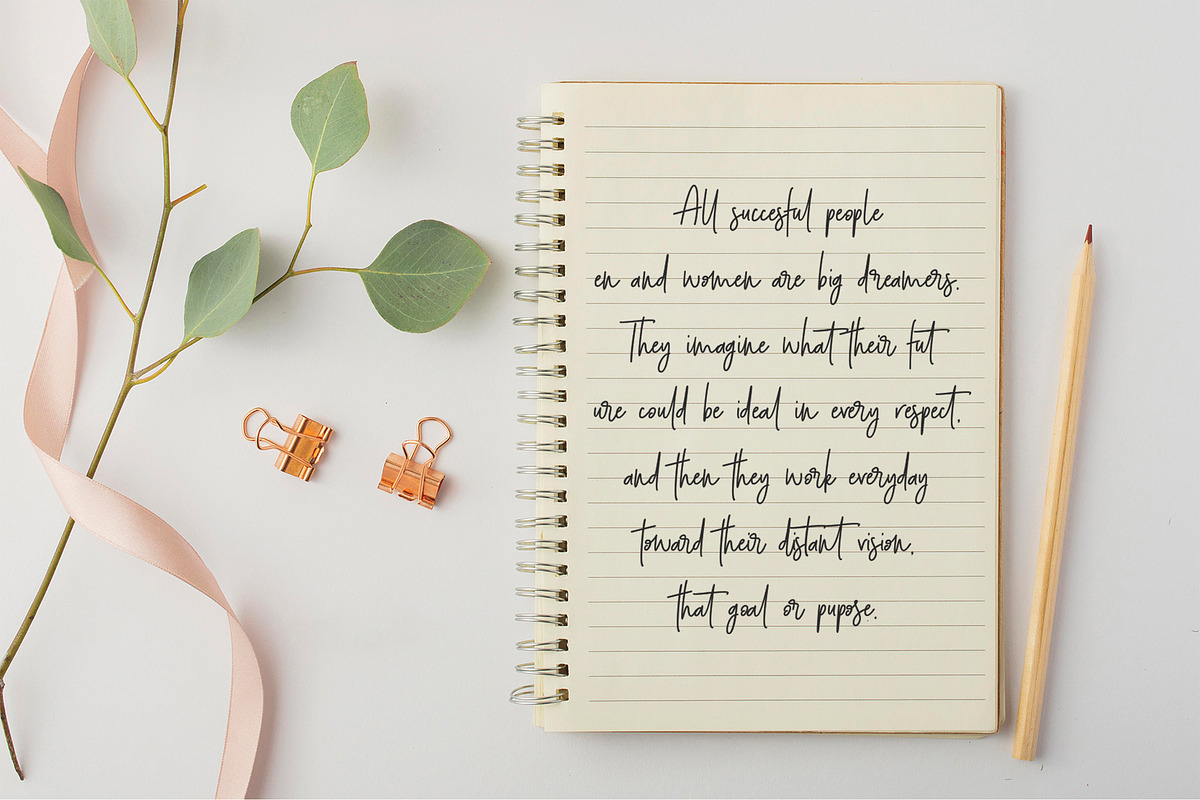 All succesful people
en and women are big dreamers.
They imagine what their fut
ure could be ideal in every respect,
and then they work everyday
toward their distant vision,
that goal or pupose.